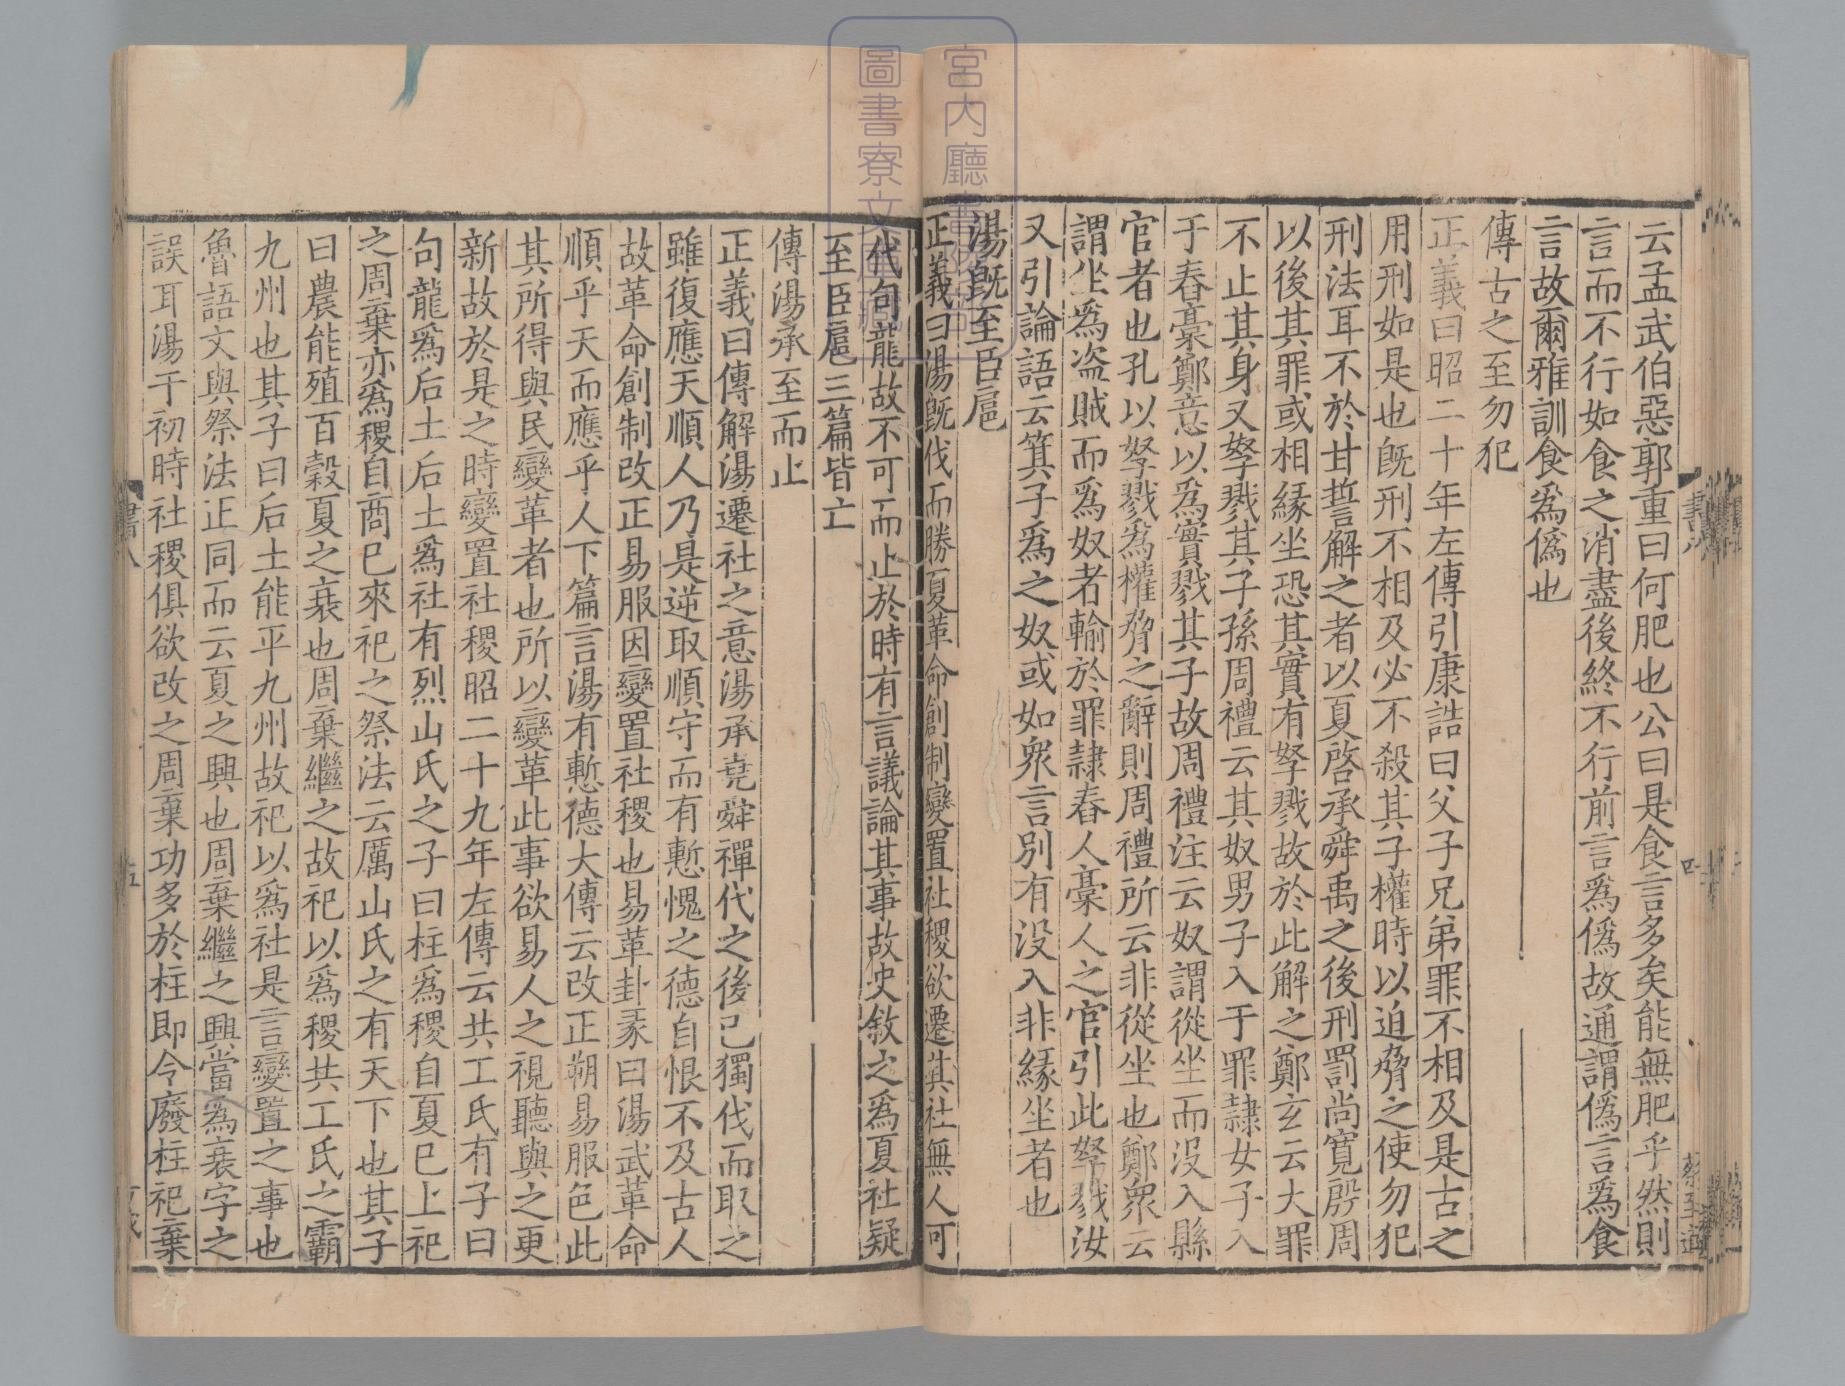 云孟武伯惡郭重曰何肥也公曰是食言多矣能無肥乎然則
言而不行如食之消盡後終不行前言爲僞故通謂僞言爲食
言故爾雅訓食爲僞也
傳古之至勿犯
正義曰昭二十年左傳引康誥曰父子兄弟罪不相及是古之
用刑如是也旣刑不相及必不殺其子權時以迫脅之使勿犯
刑法耳不於甘誓解之者以夏啓承舜禹之後刑罰尚寬殷周
以後其罪或相緣坐恐其實有孥戮故於此解之鄭玄云大罪
不止其身又孥戮其子孫周禮云其奴男子入于罪隸女子入
于舂槀鄭意以爲實戮其子故周禮注云奴謂從坐而没入縣
官者也孔以孥戮爲權脅之辭則周禮所云非從坐也鄭衆云
謂坐爲盗賊而爲奴者輸於罪隸舂人槀人之官引此孥戮汝
又引論語云箕子爲之奴或如衆言別有没入非緣坐者也
湯旣至臣扈
正義曰湯旣伐而勝夏革命創制變置社稷欲遷其社無人可
代句龍故不可而止於時有言議論其事故史敘之爲夏社疑
至臣扈三篇皆亡
傳湯承至而止
正義曰傳解湯遷社之意湯承堯舜禪代之後己獨伐而取之
雖復應天順人乃是逆取順守而有慙愧之德自恨不及古人
故革命創制改正易服因變置社稷也易革卦彖曰湯武革命
順乎天而應乎人下篇言湯有慙德大傳云改正朔易服色此
其所得與民變革者也所以變革此事欲易人之視聽與之更
新故於是之時變置社稷昭二十九年左傳云共工氏有子曰
句龍爲后土后土爲社有烈山氏之子曰柱爲稷自夏已上祀
之周棄亦爲稷自商已來祀之祭法云厲山氏之有天下也其子
曰農能殖百穀夏之衰也周棄繼之故祀以爲稷共工氏之霸
九州也其子曰后土能平九州故祀以爲社是言變置之事也
魯語文與祭法正同而云夏之興也周棄繼之興當爲衰字之
誤耳湯于初時社稷俱欲改之周棄功多於柱即令廢柱祀棄
書八
四
書八
五
宮内廳書陵部
圖書寮文庫藏